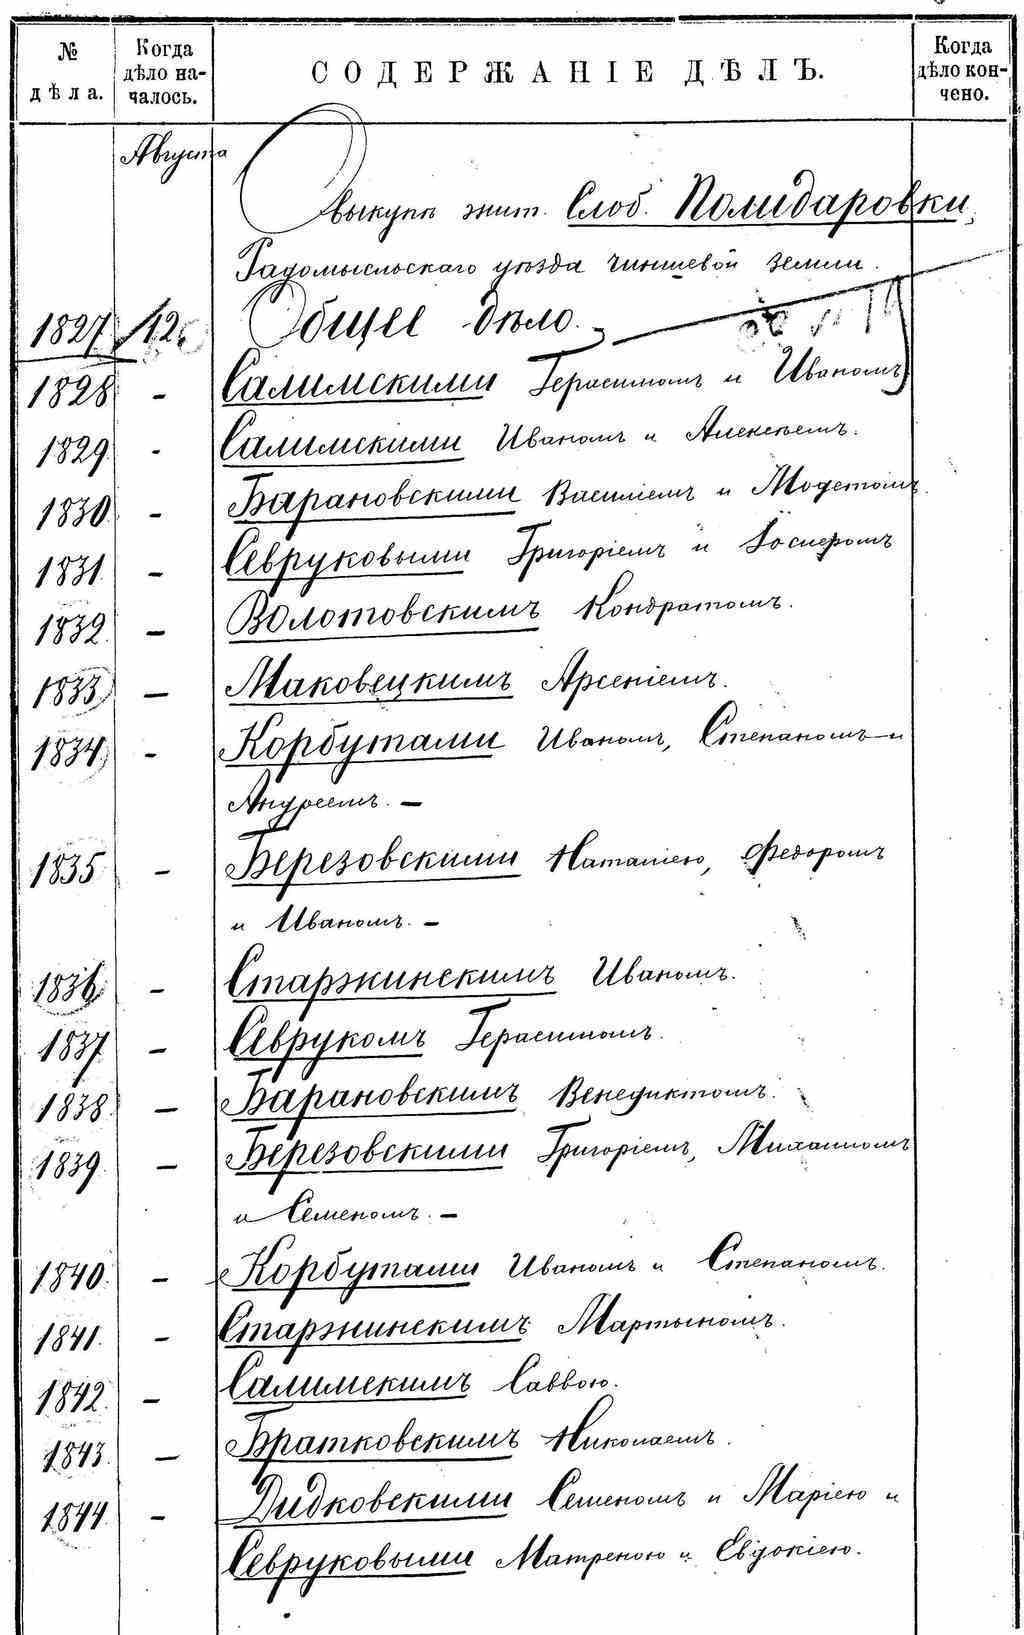 № дѣла.
Когда дѣло началось.
СОДЕРЖАНІЕ ДѢЛЪ.
Когда дѣло кончено.
Августа
О выкупѣ жит. Слоб. Полидаровки,
Радомысльскаго уѣзда чиншевой земли.
1827 12 Общее дѣло.
1828 - Салимскими Герасимомъ и Иваномъ
1829 - Салимскими Иваномъ и Алексѣемъ.
1830 - Барановскими Василіемъ и Модетомъ.
1831 - Севруковыми Григоріемъ и Іосифомъ
1832 - Волотовскимъ Кондратомъ.
1833 - Маковецкимъ Арсеніемъ.
1834 - Корбутами Иваномъ, Степаномъ и
Андреемъ. -
1835 - Березовскими Наталіею, Федоромъ
и Иваномъ. -
1836 - Старжинскимъ Иваномъ.
1837 - Севрукомъ Герасимомъ.
1838 - Барановскимъ Венедиктомъ.
1839 - Березовскими Григоріемъ, Михаиломъ
и Семеномъ. -
1840 - Корбутами Иваномъ и Степаномъ.
1841 - Старжинскимъ Мартыномъ.
1842 - Салимскимъ Саввою.
1843 - Братковскимъ Николаемъ.
1844 - Дидковскими Семеномъ и Маріею и
Севруковыми Матреною и Евдокіею.